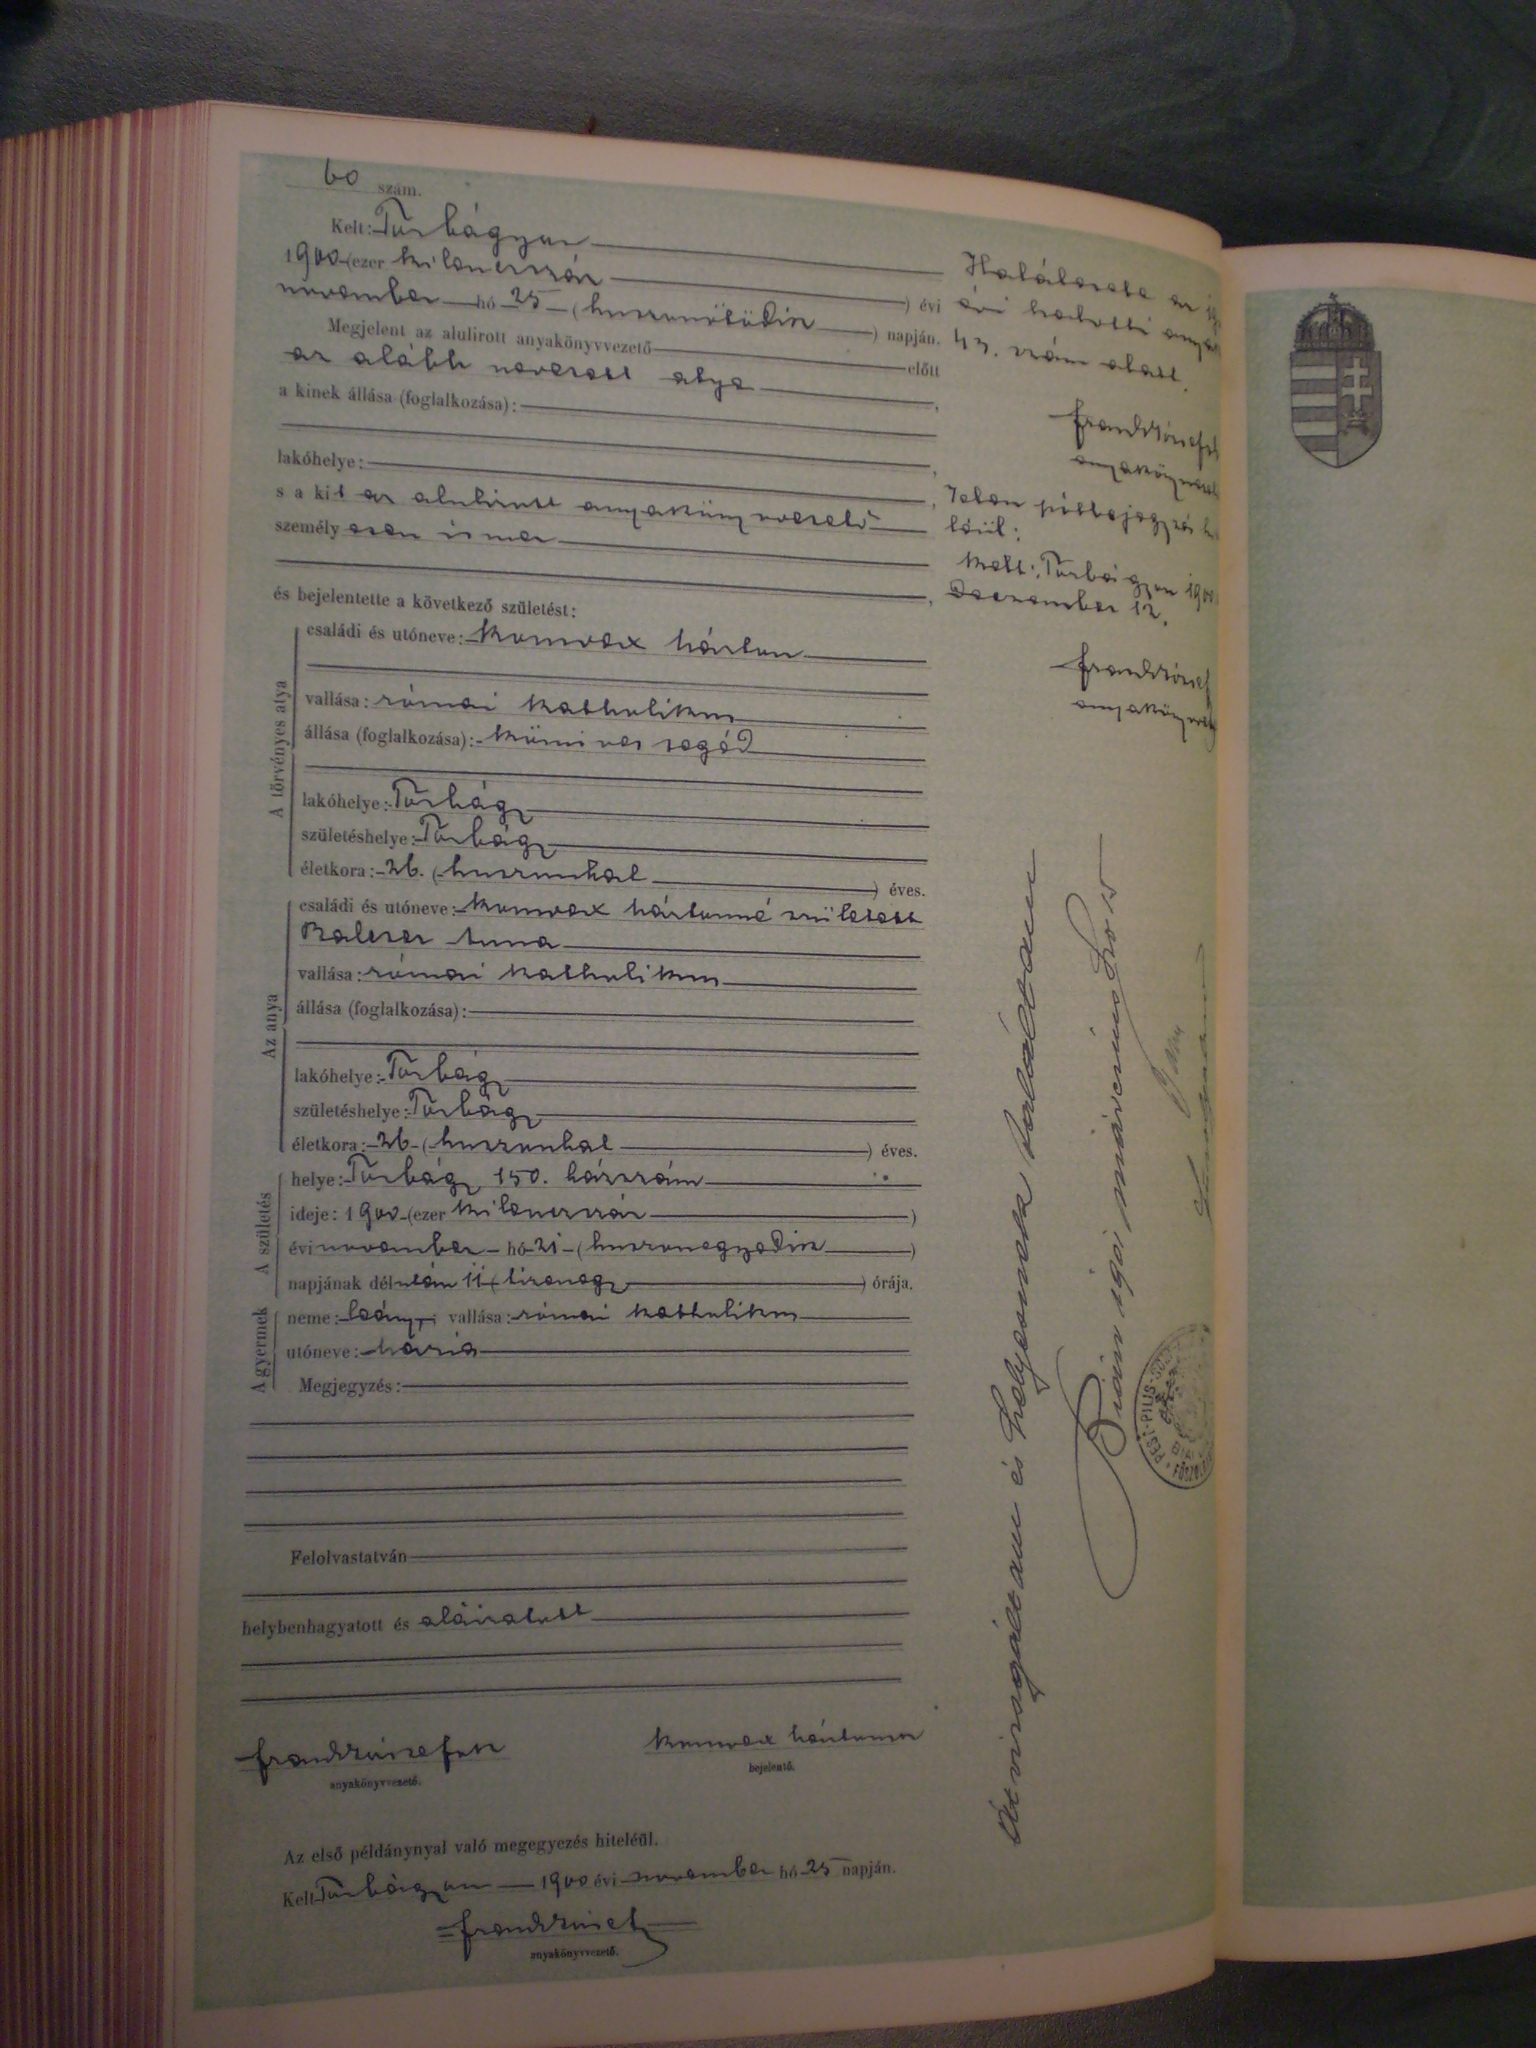 60 szám.
Kelt: Törbágyon
1900 (ezer kilenczszáz ) évi
november hó 25 (huszonötödik ) napján.
Megjelent az alulirott anyakönyvvezető előtt
az alább nevezett atya ,
a kinek állása (foglalkozása):
,
lakóhelye: ,
s a kit az alulirott anyakönyvvezető
személyesen ismer
,
és bejelentette a következő születést:
A törvényes atya
családi és utóneve: Márton
vallása: római katholikus
állása (foglalkozása): kőmives segéd
lakóhelye: Törbágy
születéshelye: Törbágy
életkora: 26. (huszonhat ) éves.
Az anya
családi és utóneve: Mártonné született
Anna
vallása: római katholikus
állása (foglalkozása):
lakóhelye: Törbágy
születéshelye: Törbágy
életkora: 26 (huszonhat ) éves.
A születés
helye: Törbágy 150. házszám
ideje: 1900 (ezer kilenczszáz )
évi november hó 21 (huszonegyedik )
napjának délután 11 (tizenegy ) órája.
A gyermek
neme: leány; vallása: római katholikus
utóneve: Mária
Megjegyzés:
Felolvastatván
helybenhagyatott és aláiratott
Frank József
anyakönyvvezető.
Márton
bejelentő.
Az első példánynyal való megegyezés hiteléül.
Kelt Törbágyon 1900 évi november hó 25 napján.
Frank József
anyakönyvvezető.
Halálesete az
évi halotti
43. szám alatt.
Frank József
Jelen
Kelt: Törbágyon 1900
Deczember 12.
Frank József
Átvizsgáltam és helyesnek találtam
Bián 1901 márczius hó 15
PEST-PILIS-SOL
BIAI